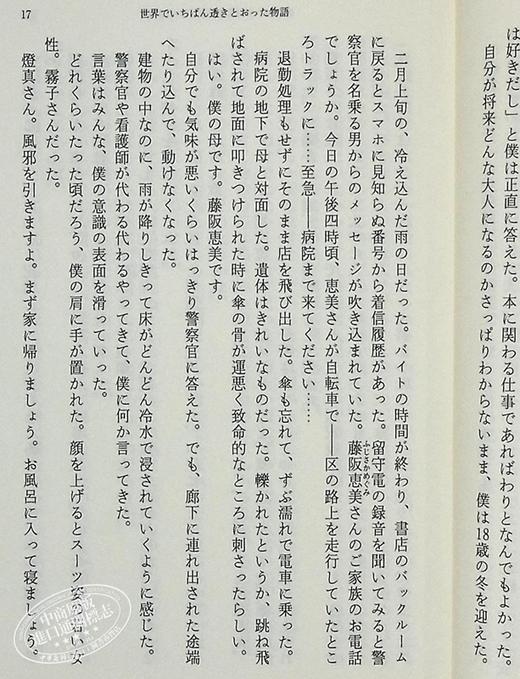 は好きだし」と僕は正直に答えた。本に関わる仕事であればわりとなんでもよかった。
自分が将来どんな大人になるのかさっぱりわからないまま、僕は18歳の冬を迎えた。
17
世界でいちばん透きとおった物語
二月上旬の、冷え込んだ雨の日だった。バイトの時間が終わり、書店のバックルーム
に戻るとスマホに見知らぬ番号から着信履歴があった。留守電の録音を聞いてみると警
察官を名乗る男からのメッセージが吹き込まれていた。藤阪恵美さんのご家族のお電話
ふじさかめぐみ
でしょうか。今日の午後四時頃、恵美さんが自転車で――区の路上を走行していたとこ
ろトラックに……至急――病院まで来てください……
退勤処理もせずにそのまま店を飛び出した。傘も忘れて、ずぶ濡れで電車に乗った。
病院の地下で母と対面した。遺体はきれいなものだった。轢かれたというか、跳ね飛
ばされて地面に叩きつけられた時に傘の骨が運悪く致命的なところに刺さったらしい。
はい。僕の母です。藤阪恵美です。
自分でも気味が悪いくらいはっきり警察官に答えた。でも、廊下に連れ出された途端
へたり込んで、動けなくなった。
建物の中なのに、雨が降りしきって床がどんどん冷水で浸されていくように感じた。
警察官や看護師が代わる代わるやってきて、僕に何か言ってきた。
言葉はみんな、僕の意識の表面を滑っていった。
どれくらいたった頃だろう、僕の肩に手が置かれた。顔を上げるとスーツ姿の若い女
性。霧子さんだった。
燈真さん。風邪を引きますよ。まず家に帰りましょう。お風呂に入って寝ましょう。
中商原版
进口通潮標志